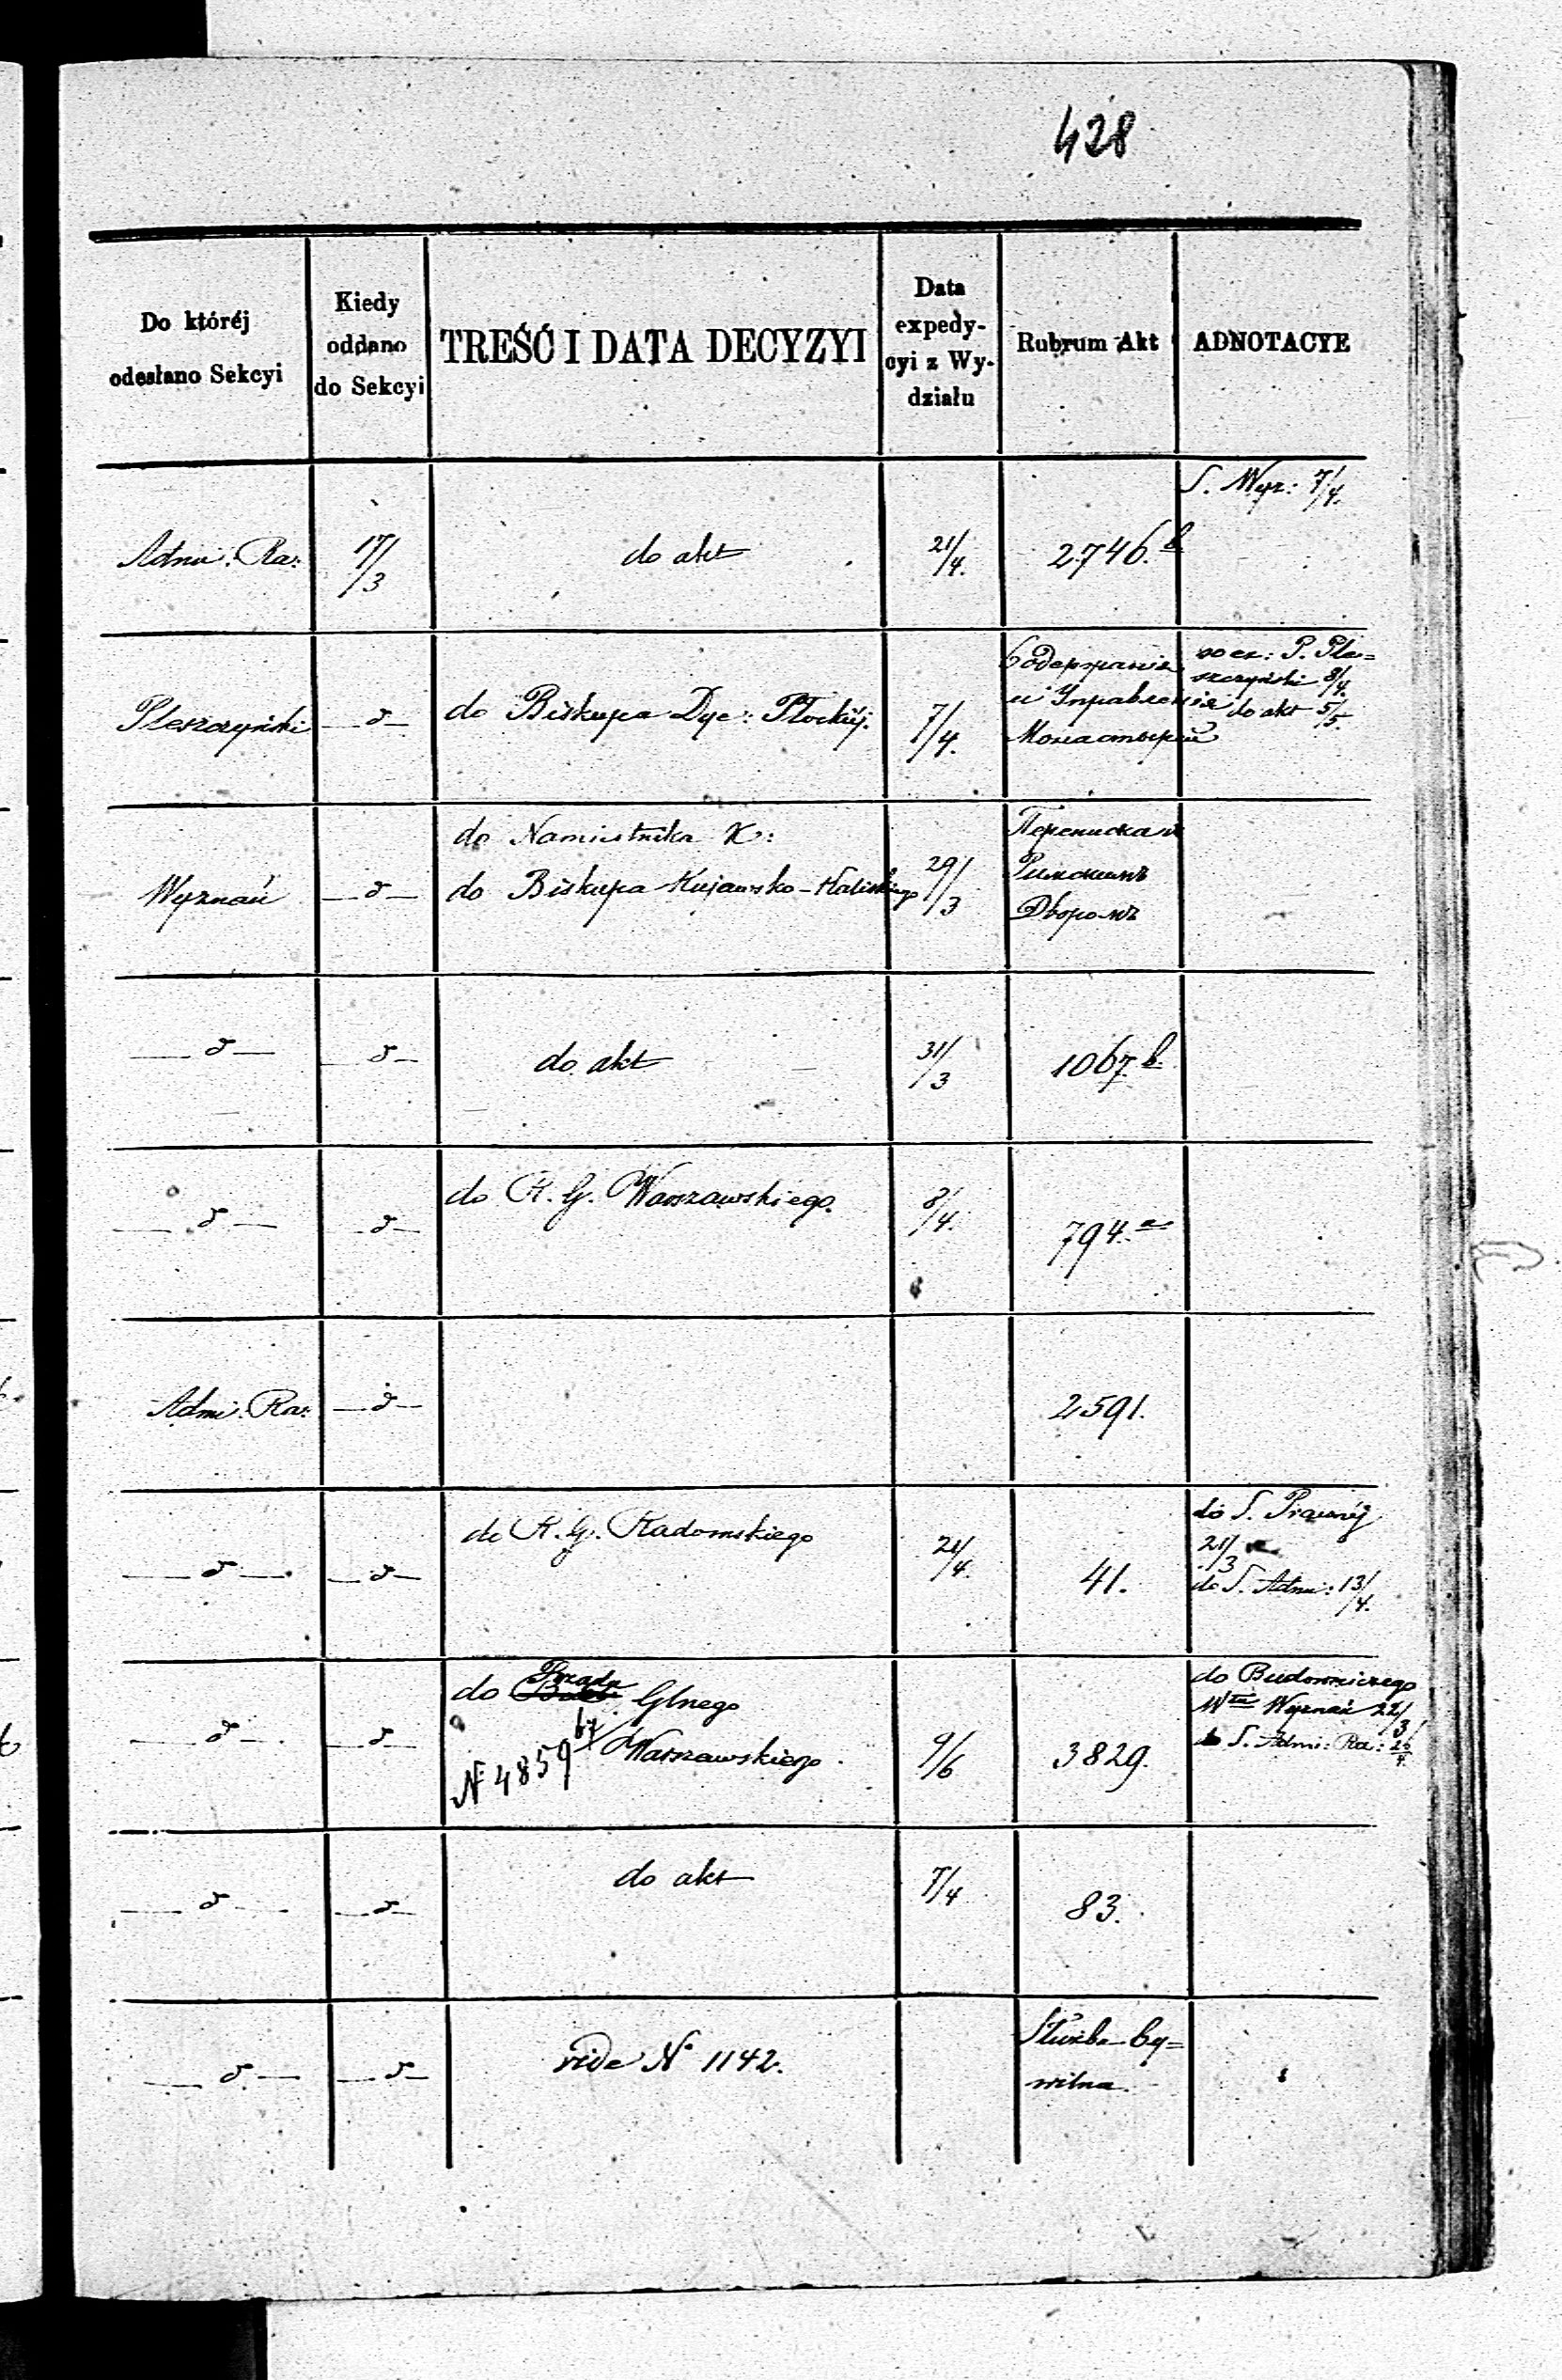 428
Do któréj
odesłano Sekcyi
Kiedy
oddano
do Sekcyi
TREŚĆ I DATA DECYZYI
Data
expedy-
cyi z Wy-
działu
Rubrum Akt
ADNOTACYE
Admi: Ra:
17/3
do akt
21/4.
2746. b
S. Wyz: 7/4.
Pleszczyński
— d —
do Biskupa Dye: Płockiéj.
7/4.
Содержанія
и Управленія
Монастырей
P. Ple=
szczyński 8/4.
do akt 5/5.
Wyznań
— d —
do Namiestnika K:
do Biskupa Kujawsko-Kaliskiego
29/3
Переписка съ
Римскимъ
Дворомъ
— d —
— d —
do akt
31/3
1067. b.
— d —
— d —
do R. G. Warszawskiego.
8/4.
794. a
Admi: Ra:
— d —
2591.
— d —
— d —
do R. G. Radomskiego
21/4.
41.
do S. Prawnéj
21/3
do S. Admi: 13/4.
— d —
— d —
do Rządu Glnego
Warszawskiego.
N 4859/67
9/6
3829.
do Budowniczego
Wyznań 22/3
do S. Admi: Ra: 26/4.
— d —
— d —
do akt
7/4
83.
— d —
— d —
vide N° 1142.
Służba Cy=
wilna.